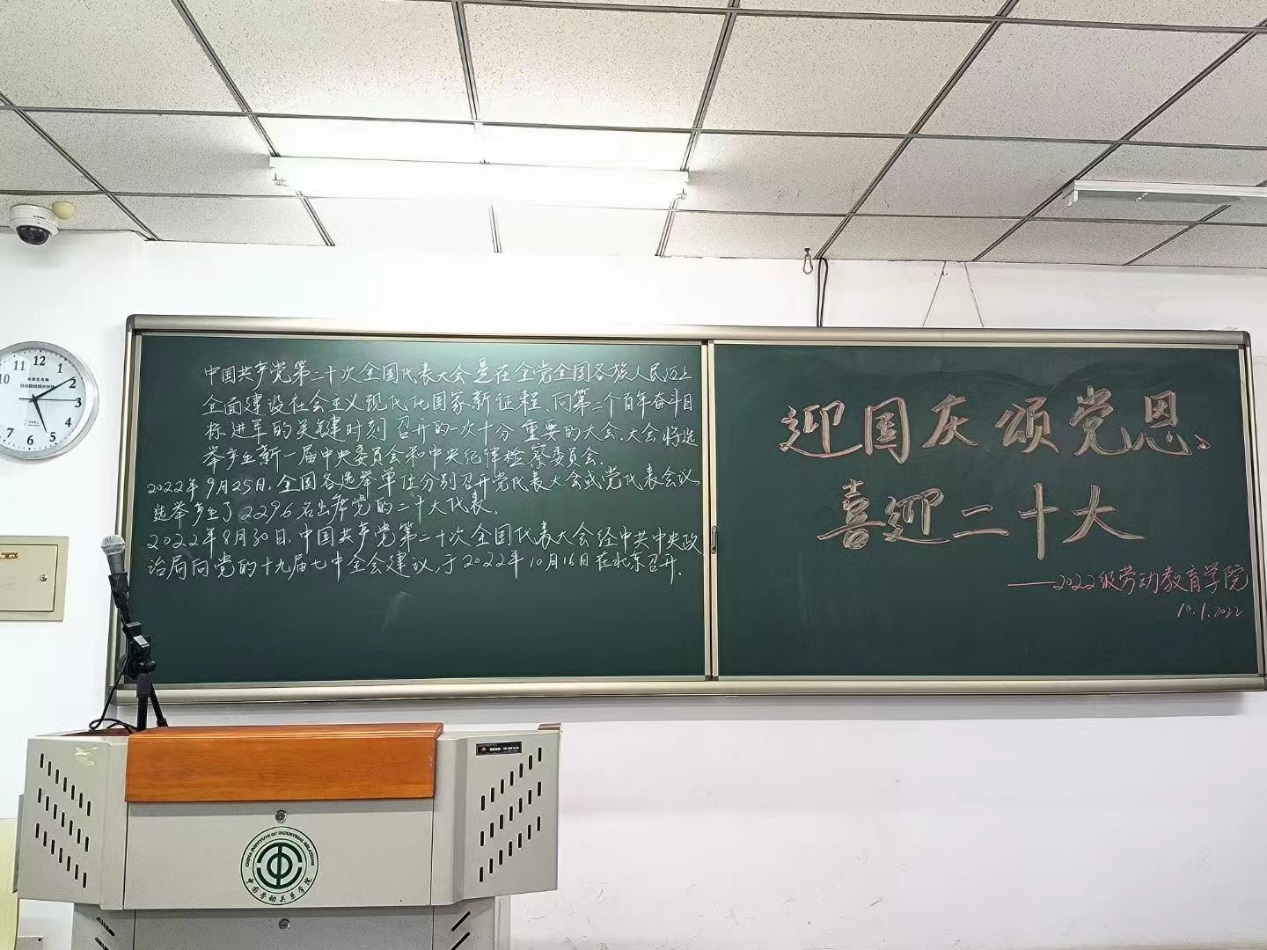 中国共产党第二十次全国代表大会是在全党全国各族人民迈上
全面建设社会主义现代化国家新征程、向第二个百年奋斗目
标进军的关键时刻召开的一次十分重要的大会。大会将选
举产生新一届中央委员会和中央纪律检察委员会.
2022年9月25日,全国各选举单位分别召开党代表大会或党代表会议
选举产生了2296名出席党的二十大代表。
2022年8月30日,中国共产党第二十次全国代表大会经中共中央政
治局向党的十九届七中全会建议,于2022年10月16日在北京召开.
迎国庆颂党恩、
喜迎二十大
——2022级劳动教育学院
10.1.2022
12
1
2
3
5
6
7
8
9
10
11
CHINA INSTITUTE OF INDUSTRIAL RELATIONS
中国劳动关系学院